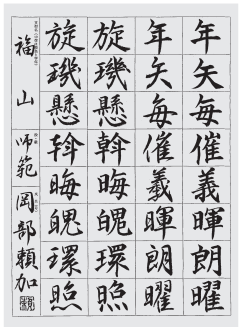 年矢毎催羲暉朗曜
年矢毎催羲暉朗曜
旋璣懸斡晦魄環照
旋璣懸斡晦魄環照
福山師範岡部頼加